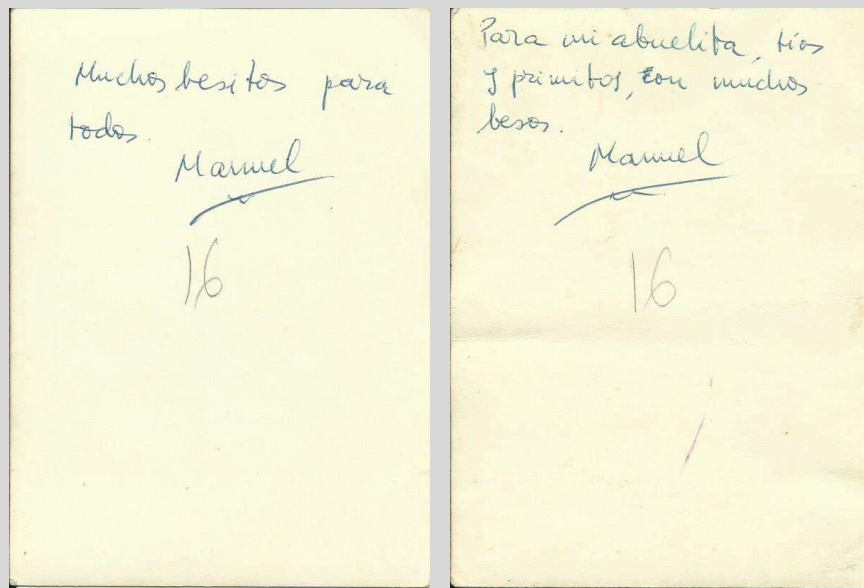 Muchos besitos para
todos.
Manuel
16
Para mi abuelita, tíos
y primitos, con muchos
besos.
Manuel
16